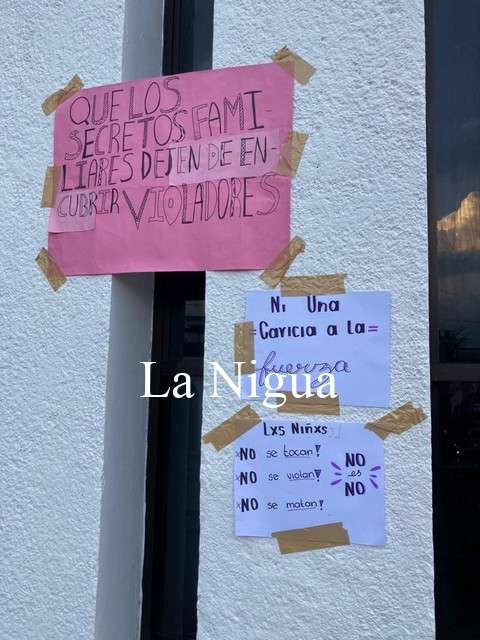 QUE LOS
SECRETOS FAMI-
LIARES DEJEN DE EN-
CUBRIR VIOLADORES
Ni Una
=Caricia a la=
fuerza
La Nigua
Lxs Niñxs
xNO se tocan!
xNO se violan!
xNO se matan!
NO
es
NO